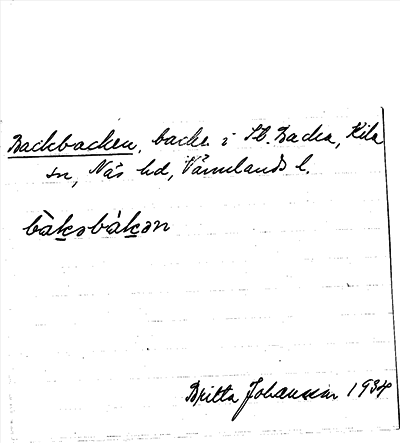 Backbacken, backe i St. Backa, Kila
sn, Näs hd, Värmlands l.
bàkəbákən
Britta Johansson 1934